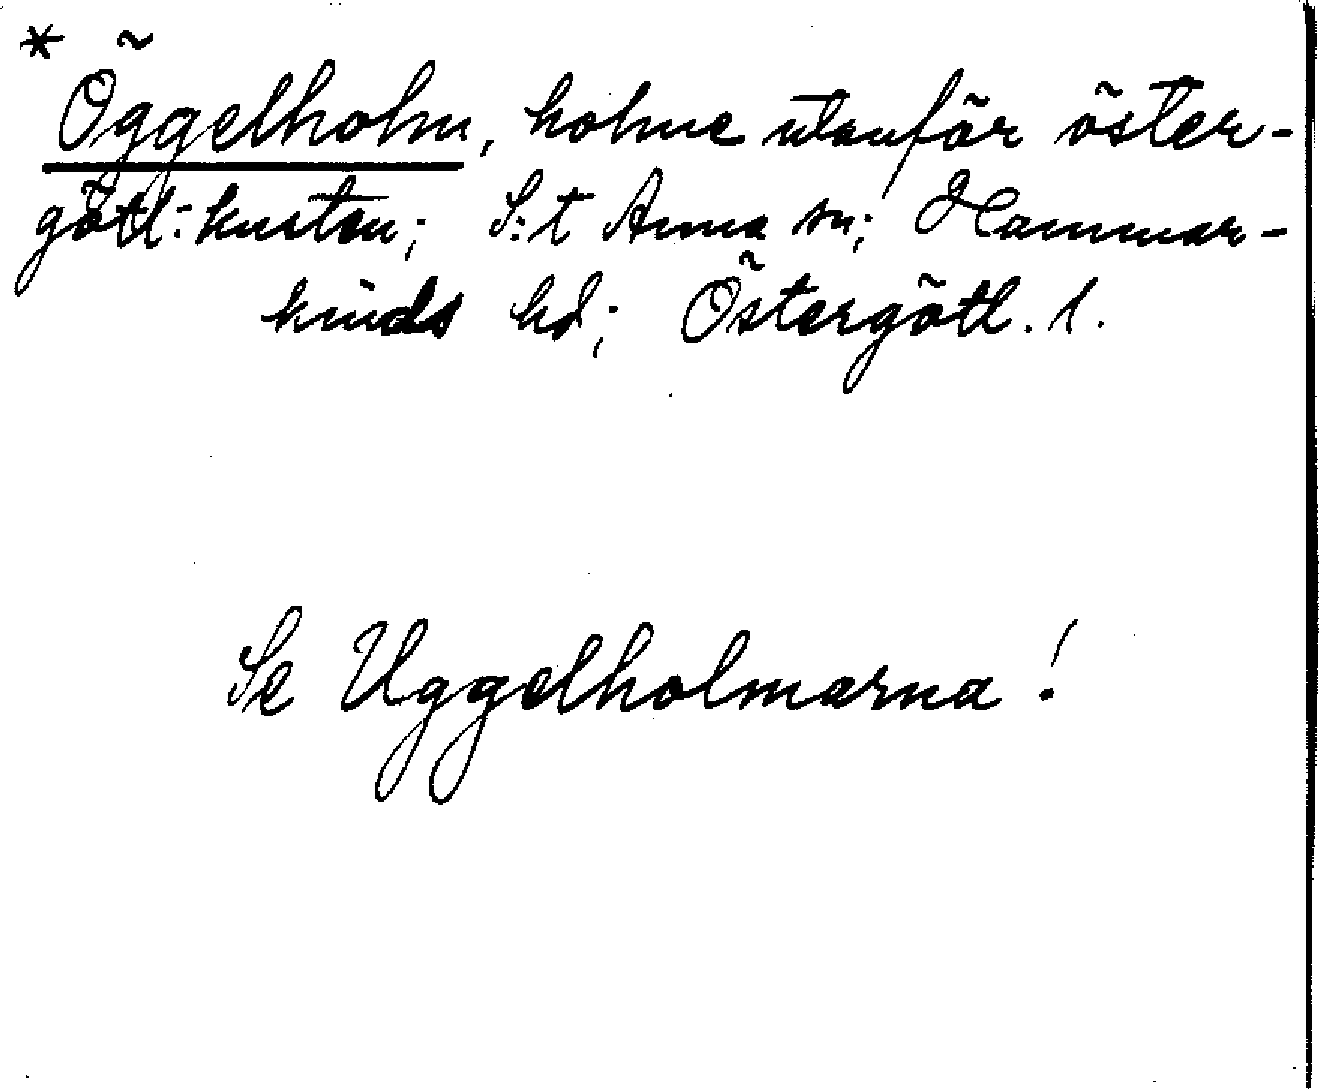 * Öggelholm, holme utanför öster-
götl:kusten; S:t Anna sn; Hammar-
kinds hd; Östergötl. l.
Se Uggelholmarna!